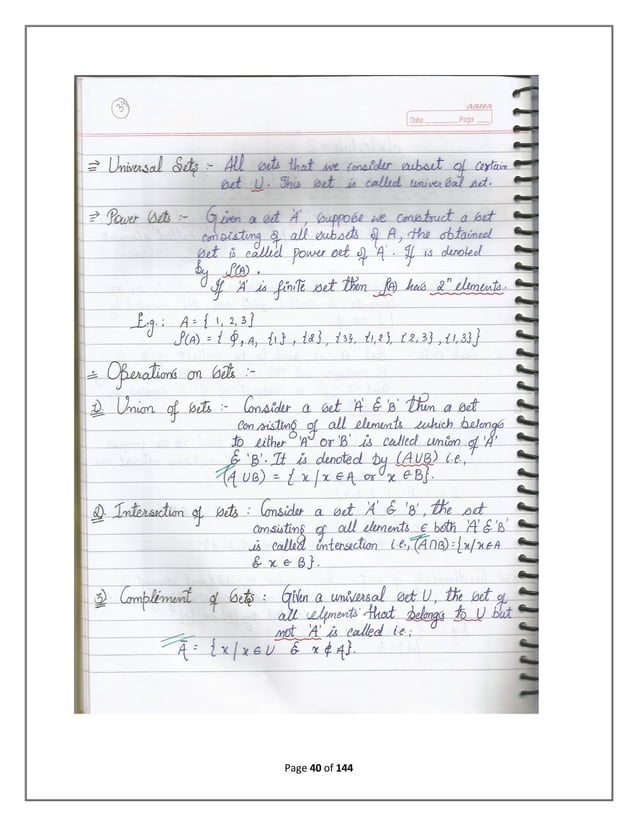 39
ABBA
Date Page
⇒ Universal Sets :- All sets that we consider subset of certain
set U. This set is called universal set.
⇒ Power Sets :- Given a set 'A', suppose we construct a set
consisting of all subsets of A, the obtained
set is called power set of 'A'. If is denoted
by P(A).
If 'A' is finite set then P(A) has 2ⁿ elements.
E.g.: A = { 1, 2, 3}
P(A) = { ϕ, A, {1}, {2}, {3}, {1,2}, {2,3}, {1,3}}
∴ Operations on Sets :-
1). Union of sets :- Consider a set 'A' & 'B' then a set
consisting of all elements which belongs
to either 'A' or 'B' is called union of 'A'
& 'B'. It is denoted by (A∪B) i.e.,
(A∪B) = { x / x ∈ A or x ∈ B}.
2). Intersection of sets : Consider a set 'A' & 'B', the set
consisting of all elements ∈ both 'A' & 'B'
is called intersection i.e., (A∩B) = {x/x∈A
& x ∈ B}.
3) Complement of sets : Given a universal set U, the set of
all elements that belongs to U but
not 'A' is called i.e;
Ā = { x / x ∈ U & x ∉ A}.
Page 40 of 144